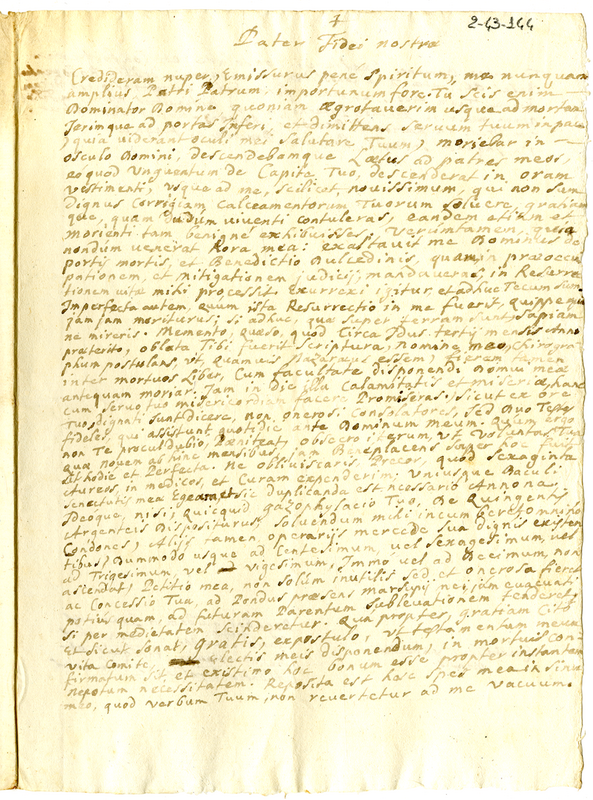 2-43-144
Pater Fidei nostræ
Credideram nuper, Emissurus pené Spiritum, me nunquam
amplius Patri Patrum importunum fore. Tu scis enim
Dominator Domine quoniam ægrotaverim usque ad mortem
Ierimque ad portas Inferi, et dimittens servum tuum in pace
quia viderant oculi mei Salutare Tuum, moriebar in
osculo Domini, descendebamque Lætus ad patres meos,
eo quod Unguentum de Capite Tuo, descenderat in oram
vestimenti, Usque ad me, scilicet novissimum, qui non sum
dignus Corrigiam Calceamentorum Tuorum solvere, gratiam
que, quam dudum viventi contuleras, eandem etiam et
morienti tam benigne exhibuisses. Verumtamen, quia
nondum venerat Hora mea: exaltavit me Dominus de
portis mortis, et Benedictio Dulcedinis, quam in præoccu
pationem, et mitigationem judicij, mandaveras, in Reserva
tionem vitæ mihi processit. Exurrexi igitur, et adhuc Tecum sum.
Imperfecta autem, quum ista Resurrectio in me fuerit, quippe qui
jam jam moriturus, si adhuc, quæ super terram sunt, sapiam
ne mireris. Memento, quæso, quod Circa Idus tertij mensis Anno
præterito, oblata Tibi fuerit Scriptura, nomine meo, Chirogra
phum postulans, ut, quamvis Nazaræus essem, fierem tamen
inter mortuos Liber, Cum facultate disponendi Domui meæ
antequam moriar. Iam in Die illa Calamitatis et miseriæ, hanc
cum servo tuo misericordiam facere Promiseras. Sicut ex ore
Tuo, dignati sunt dicere, non onerosi Consolatores, sed Duo Testes
fideles, qui assistunt quotidie ante Dominum meum. Quum Ergo
non Te procul dubio, Pæniteat, obsecro iterum, ut Voluntas Tua
quæ novem ab hinc mensibus, jam Beneplacens super hoc fuit
sit hodie et Perfecta. Ne obliviscaris Precor, quod Sexaginta
Aureos, in medicos, et Curam expenderim, Uniusque Baculi
senectutis meæ Egeam, et sic Duplicanda est necessario Annona.
Ideoque, nisi, quicquid gazophylacio Tuo, De Quingentis
Argenteis Dispositurus, solvendum mihi incumberet, omnino
Condones, Alijs tamen operarijs mercede sua dignis existen
tibus, Dummodo usque ad Centesimum, vel Sexagesimum, vel
ad Trigesimum, vel vigesimum, Immo vel ad Decimum, non
ascendat, Petitio mea, non solum inutilis sed et onerosa fieret
ac Concessio Tua, ad Pondus præsens marsupij mei, jam evacuati
potius quam, ad futuram Parentum sublevationem tenderet,
si per medietatem scinderetur. Qua propter, gratiam Cito
Et sicut sonat, Gratis, expostulo, ut testamentum meum
vita Comite, Electis meis disponendum, in mortuis con
firmatum sit, et existimo hoc bonum esse propter instantem
nepotum necessitatem. Reposita est hæc spes mea in sinu
meo, quod verbum Tuum, non revertetur ad me vacuum.